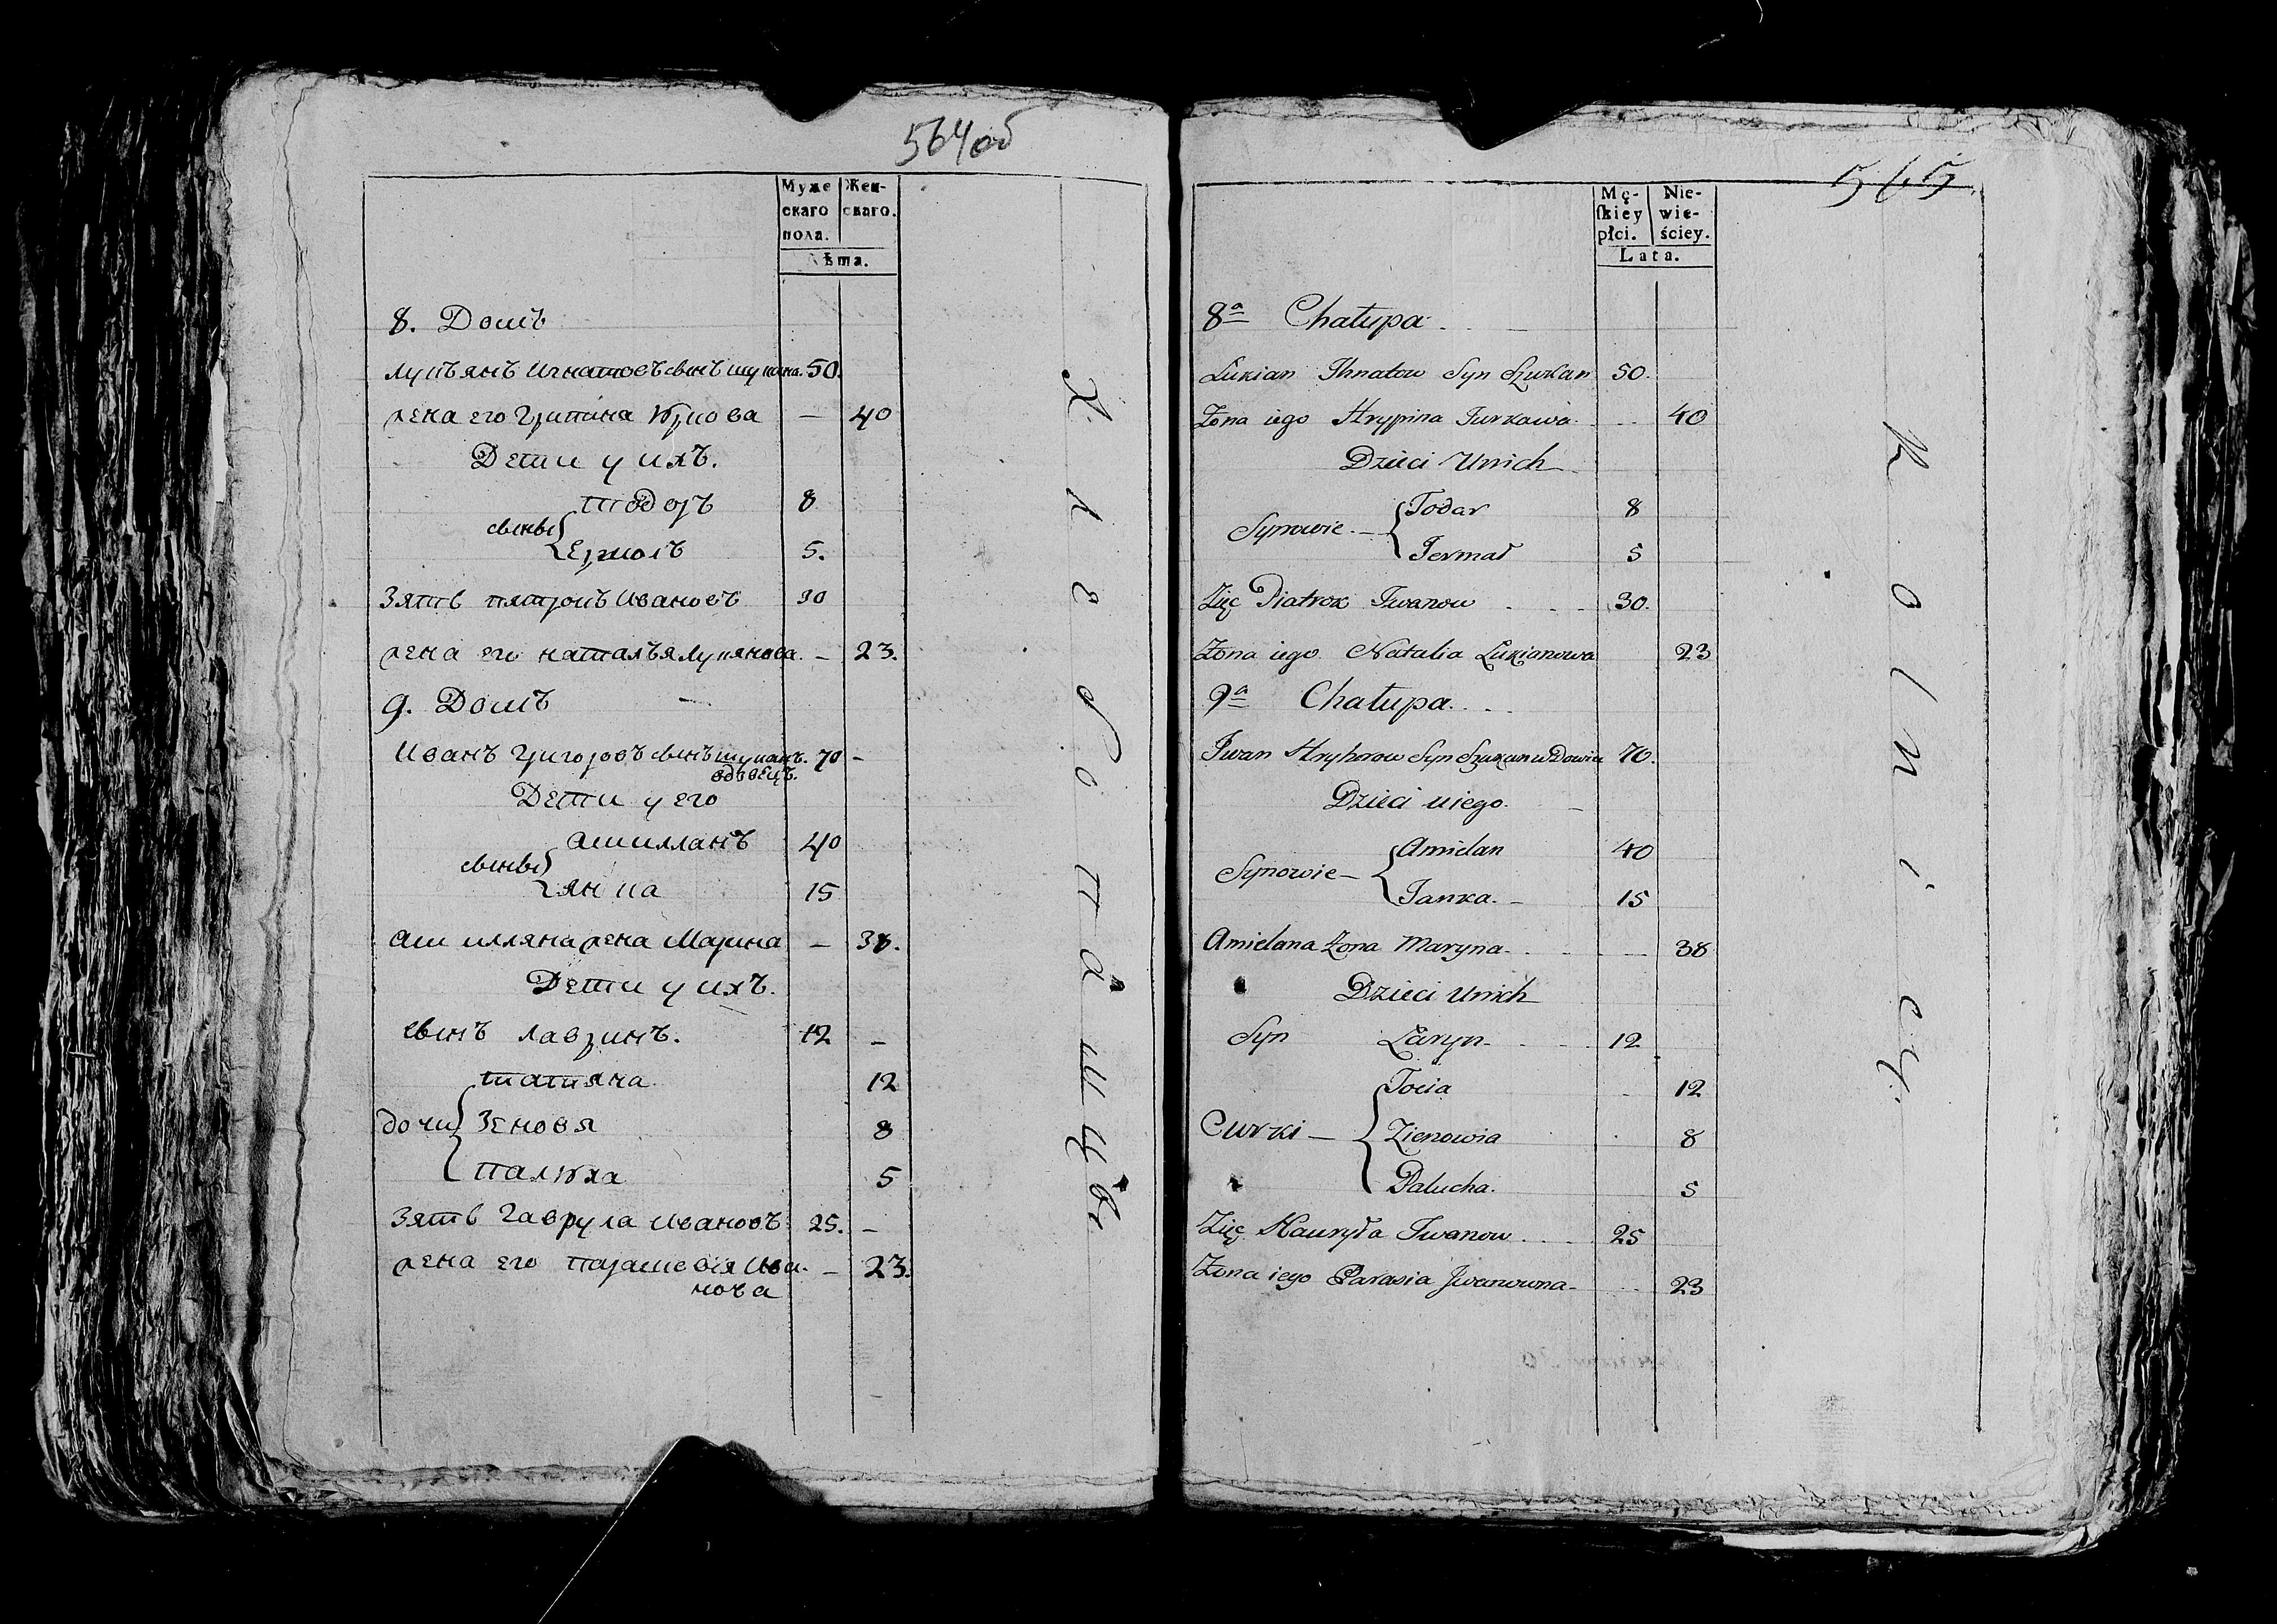 564об
Муже
скаго
пола.
Жен-
скаго.
Лѣта.
8. Домъ
лукъянъ Игнатовъ сынъ шукана. 50.
жена его Грипина Юркова — 40
Дети у ихъ.
сыны { тодоръ 8
Ермолъ 5.
Зять пятрокъ Ивановъ 30
жена его наталья лукянова. — 23.
9. Домъ
Иванъ Григоровъ сынъ шуканъ. 70 —
вдовецъ.
Дети у его
сыны { амиллянъ 40
янка 15
амилляна жена Марина — 38.
Дети у ихъ.
сынъ лавринъ. 12 —
дочки { татяна 12
Зеновя 8
палюха 5
Зять Гаврула Ивановъ 25. —
жена его парасковія Ива- — 23.
нова
Хлебопашцы
565
Mę-
ſkiey
płci.
Nie-
wie-
ściey.
Lata.
8a Chałupa
Łukian Ihnatow Syn Szukan 50.
Żona iego Hrypina Jurkawa 40
Dzieci Unich
Synowie { Todar 8
Jermał 5
Zięć Piatrok Iwanow 30.
Żona iego Natalia Łukianowa 23
9a Chałupa
Iwan Hryhorow Syn Szukan wdowiec 70.
Dzieci uiego.
Synowie { Amielan 40
Janka 15
Amielana Żona Maryna 38
Dzieci Unich
Syn Łaryn 12
Curki { Tocia 12
Zienowia 8
Palucha. 5
Zięć Hauryła Iwanow 25
Żona iego Parasia Iwanowna 23
Rolnicy.